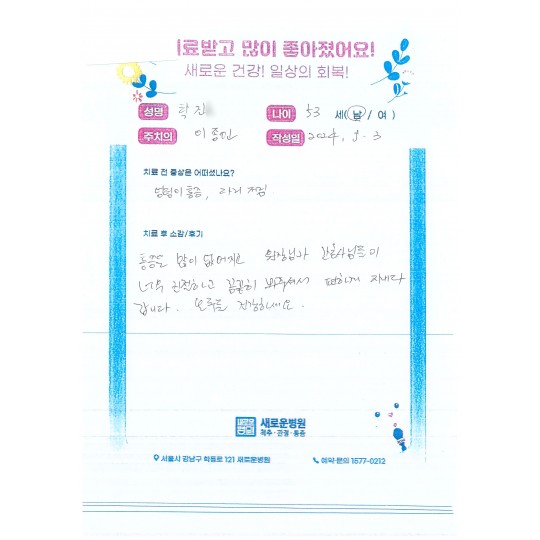 료받고 많이 좋아졌어요!
새로운 건강! 일상의 회복!
성명 학진 나이 53 세(남/여)
주치의 이종민 작성일 2024. 9. 3
치료 전 증상은 어떠셨나요?
엉덩이 통증, 다리 저림
치료 후 소감/후기
통증은 많이 없어지고 원장님과 간호사님들이
너무 친절하고 꼼꼼히 봐주셔서 편하게 지내다
갑니다. 모두들 건강하세요.
새로운병원 새로운병원
척추·관절·통증
서울시 강남구 학동로 121 새로운병원 예약·문의 1577-0212